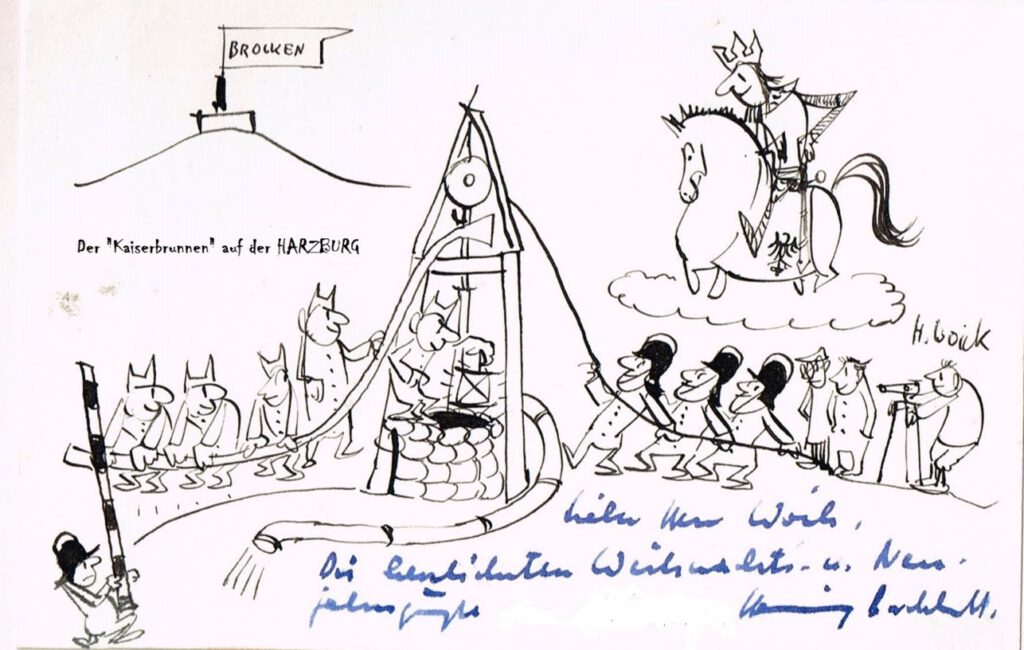 BROCKEN
Der "Kaiserbrunnen" auf der HARZBURG
H. Woick
Lieber Herr Woick,
Die herzlichsten Weihnachts- u. Neu-
jahrsgrüße
Henning